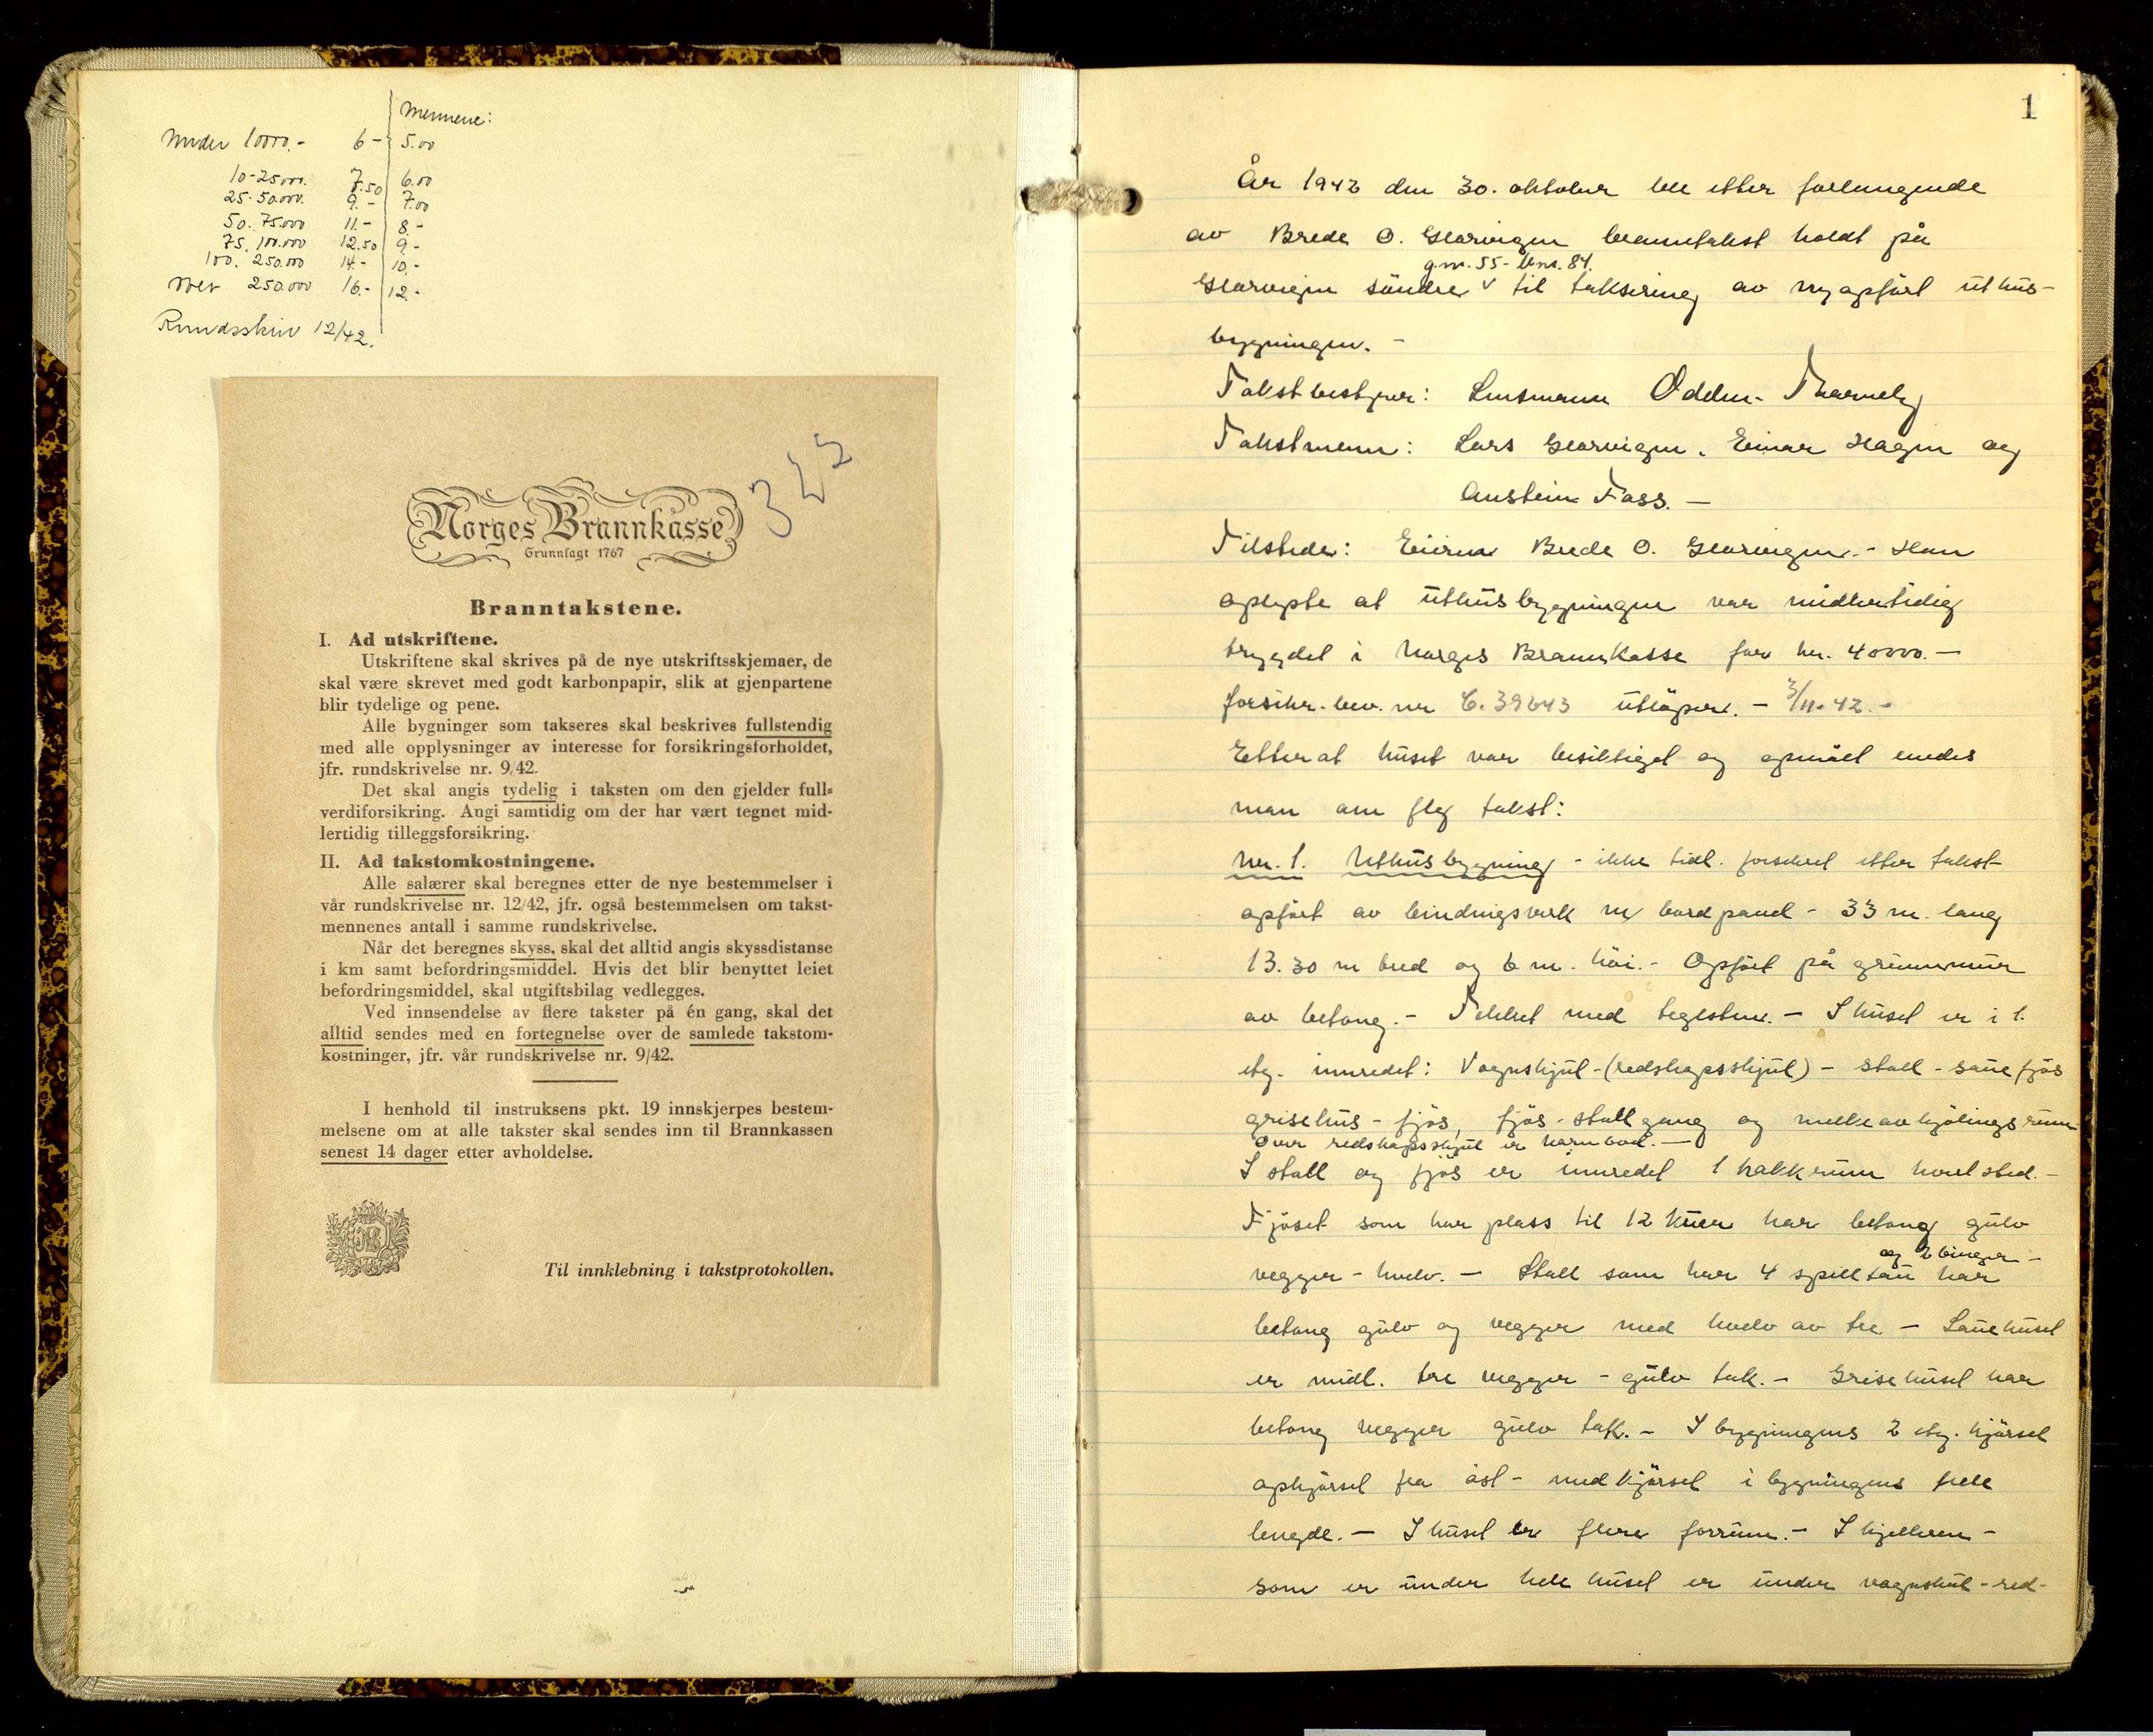 Mennene:
Under 10000.- 6- 5.00
10-25000. 7.50 6.00
25-50.000. 9.- 7.00
50. 75.000 11.- 8.-
75. 100.000 12.50 9.-
100. 250.000 14.- 10.-
over 250.000 16.- 12.-
Rundskriv 12/42.
Norges Brannkasse
Grunnlagt 1767
Branntakstene.
I. Ad utskriftene.
Utskriftene skal skrives på de nye utskriftsskjemaer, de
skal være skrevet med godt karbonpapir, slik at gjenpartene
blir tydelige og pene.
Alle bygninger som takseres skal beskrives fullstendig
med alle opplysninger av interesse for forsikringsforholdet,
jfr. rundskrivelse nr. 9/42.
Det skal angis tydelig i taksten om den gjelder full-
verdiforsikring. Angi samtidig om der har vært tegnet mid-
lertidig tilleggsforsikring.
II. Ad takstomkostningene.
Alle salærer skal beregnes etter de nye bestemmelser i
vår rundskrivelse nr. 12/42, jfr. også bestemmelsen om takst-
mennenes antall i samme rundskrivelse.
Når det beregnes skyss, skal det alltid angis skyssdistanse
i km samt befordringsmiddel. Hvis det blir benyttet leiet
befordringsmiddel, skal utgiftsbilag vedlegges.
Ved innsendelse av flere takster på én gang, skal det
alltid sendes med en fortegnelse over de samlede takstom-
kostninger, jfr. vår rundskrivelse nr. 9/42.
I henhold til instruksens pkt. 19 innskjerpes bestem-
melsene om at alle takster skal sendes inn til Brannkassen
senest 14 dager etter avholdelse.
Til innklebning i takstprotokollen.
1
År 1942 den 30. oktober ble etter forlangende
av Brede O. Glorvigen branntakst holdt på
g.nr. 55- bnr. 84.
Glorvigen söndre v til taksering av nyopfört uthus-
bygningen. -
Takstbestyrer: Lensmann Odden-
Takstmenn: Lars Glorvigen, Einar Hagen og
Anstein Fass. -
Tilstede: Eieren Brede O. Glorvigen. - Han
oplyste at uthusbygningen var midlertidig
trygdet i Norges Brannkasse for kr. 40000. -
forsikr.-bev. nr C. 39643 utlöper. - 3/11-42. -
Etter at huset var besiktiget og opmålt enedes
man om flg takst:
Nr. 1. Uthusbygning - ikke tidl. forsikret etter takst
opfört av bindingsverk m/ bordpanel - 33 m. lang
13.30 m bred og 6 m. höi. - Opfört på grunnmur
av betong. - Tekket med teglsten. - I huset er i 1.
etg. innredet: Vognskjul-(redskapsskjul) - stall - sauefjös
grisehus - fjös, fjös-stallgang og melkeavkjölingsrum
Over redskapsskjul er kornbod. -
I stall og fjös er innredet 1 kalkrum hvert sted. -
Fjöset som har plass til 12 kuer har betong gulv
og 2 binger -
vegger - hvelv. - Stall som har 4 spilltau har
betong gulv og vegger med hvelv av tre - Sauehuset
er midl. tre vegger - gulv tak. - Grisehuset har
betong vegger gulv tak. - I bygningens 2 etg. kjörsel
opkjörsel fra öst - med kjörsel i bygningens hele
lengde. - I huset er flere forrum. - I kjelleren -
som er under hele huset er under vognskjul - red-